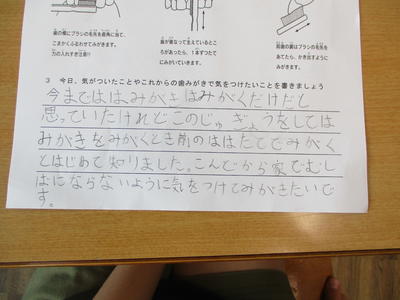 歯の横にブラシの毛先を直角に当て、
こまかくふるわせてみがきます。
力の入れすぎ注意!!
歯が重なって生えているとこ
ろがあったら、1本ずつたて
にみがいていきます。
前歯の裏はブラシの毛先を
あてたら、かき出すように
みがきます。
3 今日、気がついたことやこれからの歯みがきで気をつけたいことを書きましょう
今まではは、みがきはみがくだけだと
思っていたけれどこのじゅぎょうをしては
みがきをみがくとき前のははたてでみがく
とはじめて知りました。こんどから家でむし
ばにならないように気をつけてみがきたいで
す。